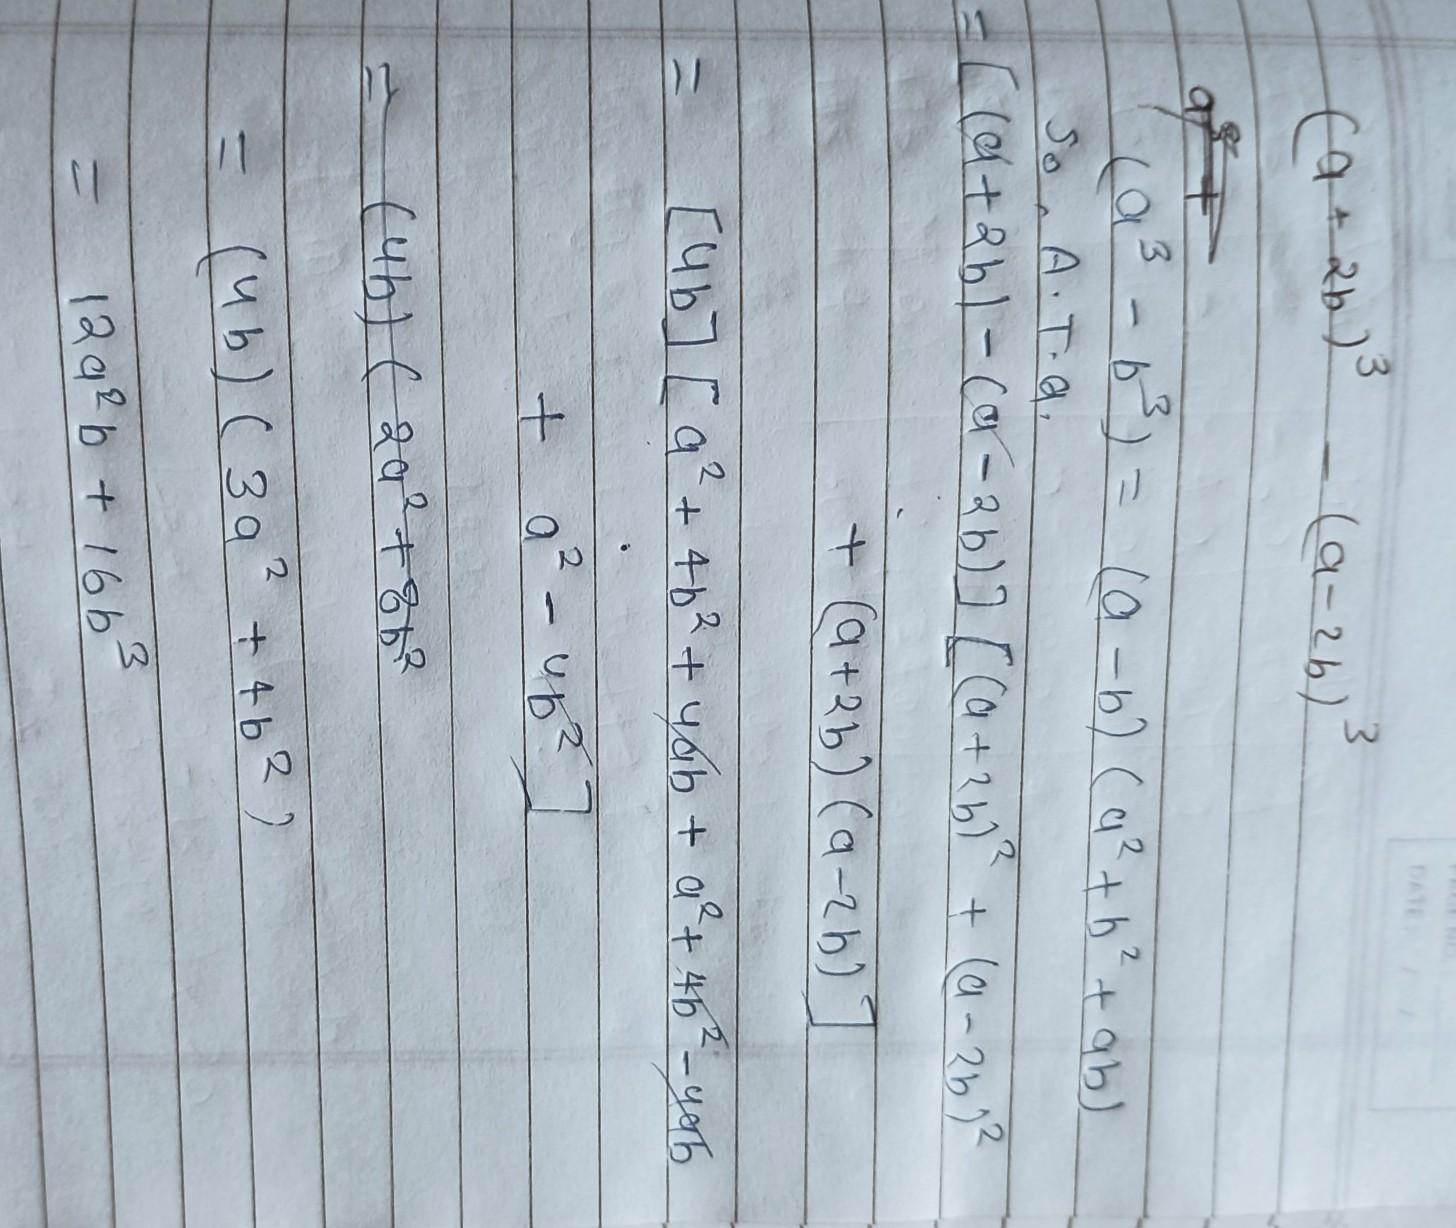 (a + 2b)³ - (a - 2b)³
(a³ - b³) = (a - b) (a² + b² + ab)
So, A.T.Q.
= [(a + 2b) - (a - 2b)] [(a + 2b)² + (a - 2b)²
+ (a + 2b) (a - 2b)]
= [4b] [a² + 4b² + 4ab + a² + 4b² - 4ab
+ a² - 4b²]
= (4b) (2a² + 8b²
= (4b) (3a² + 4b²)
= 12a²b + 16b³
DATE: / /